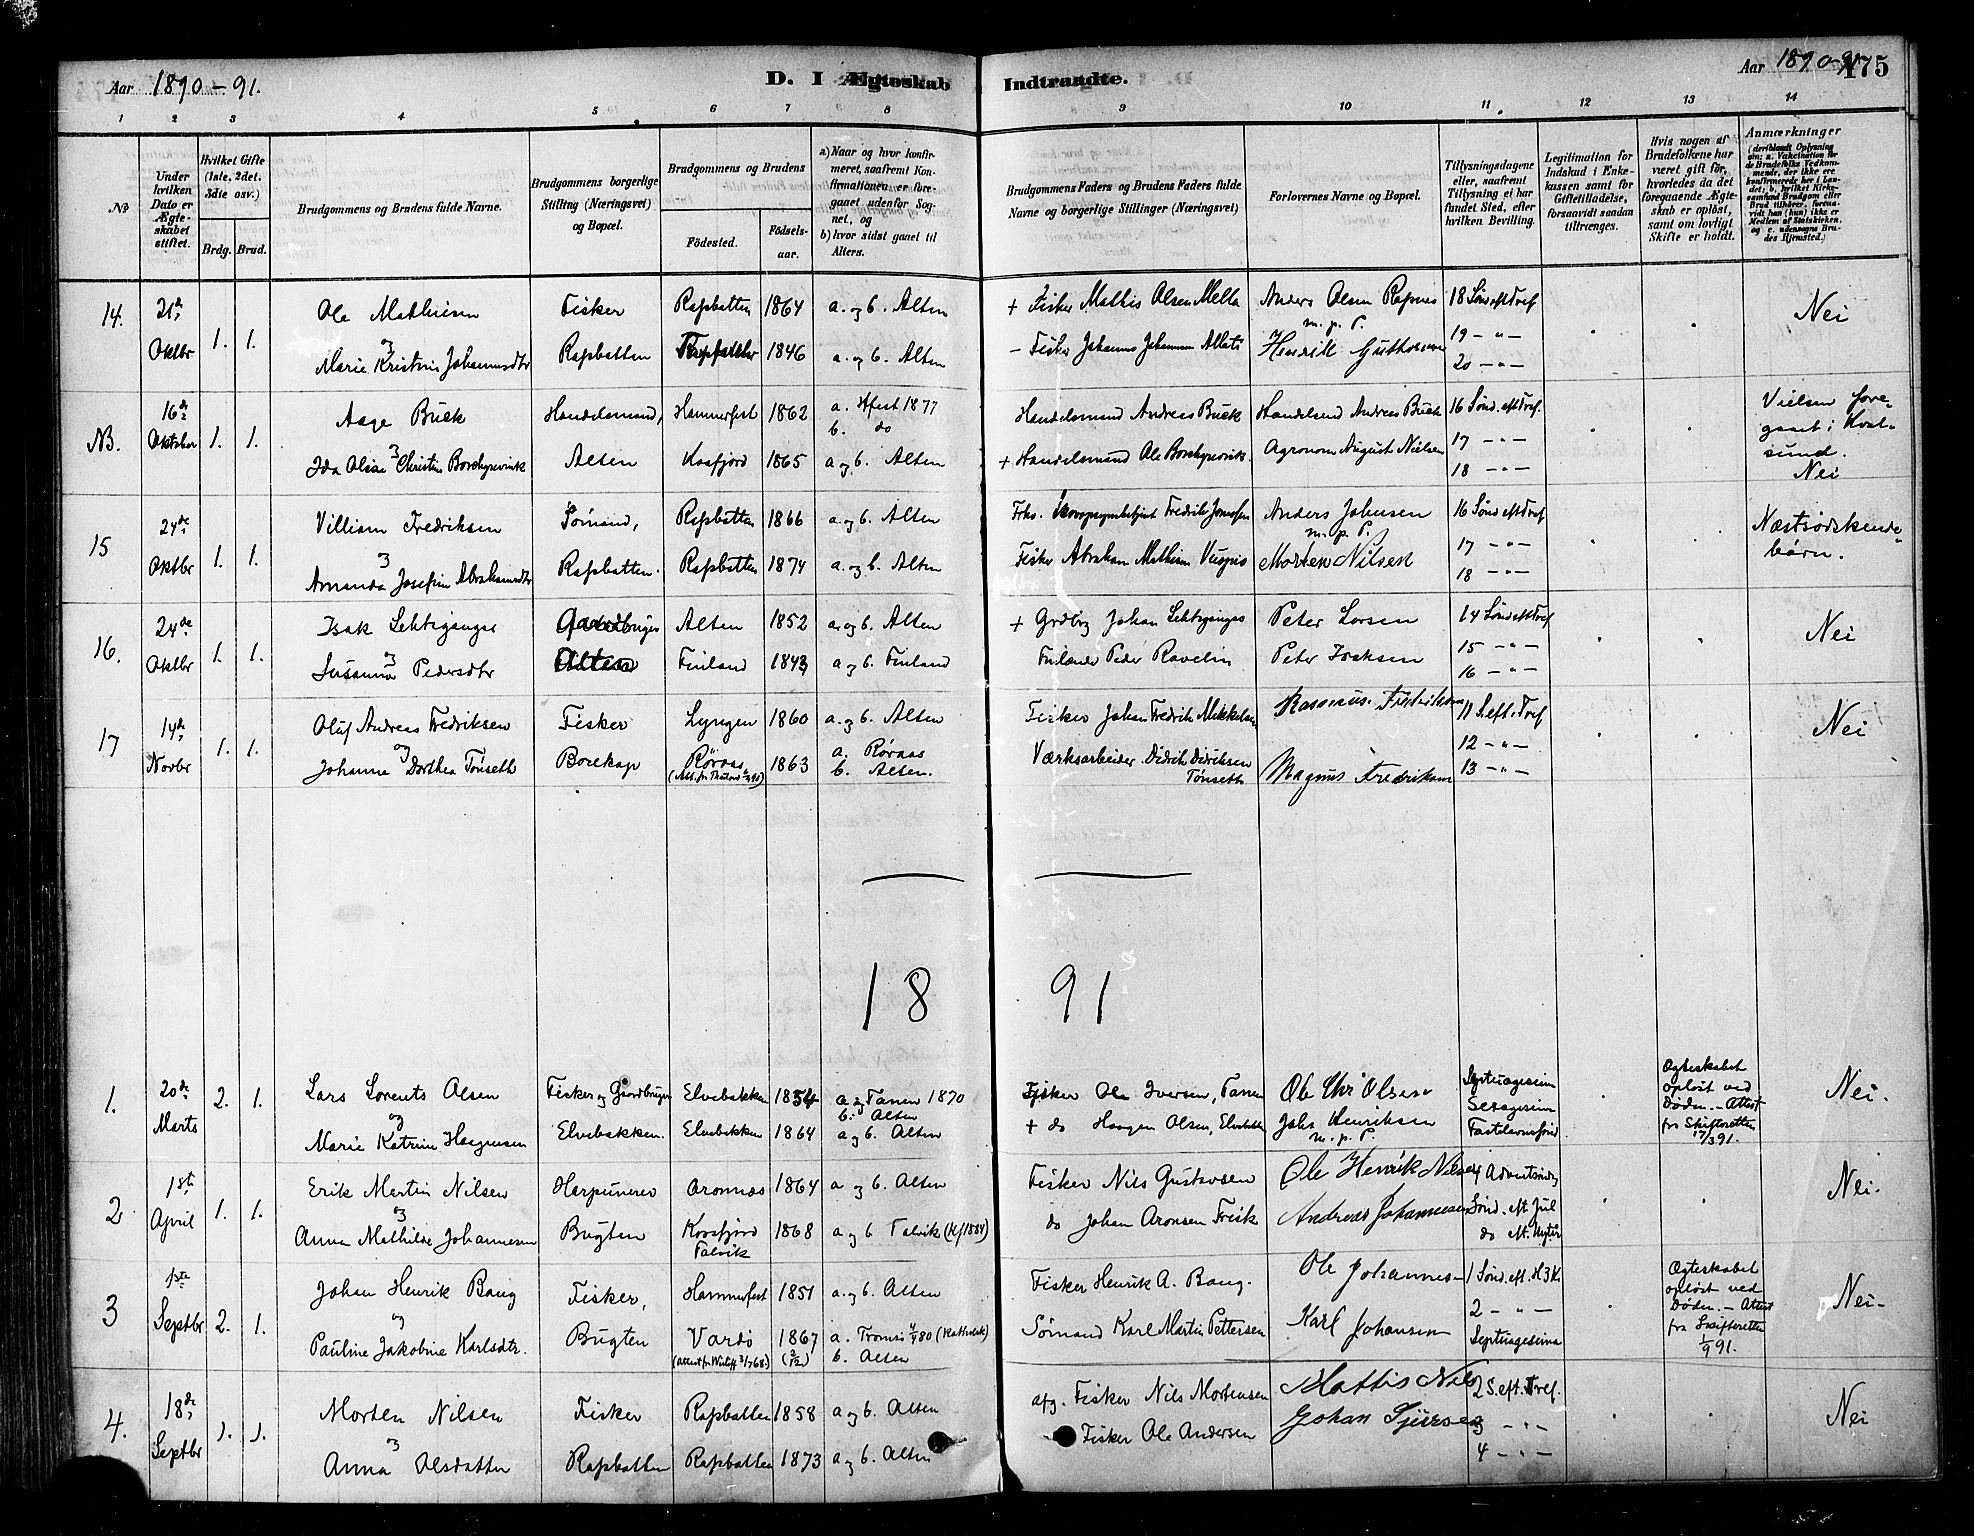 Aar 1890-91. D. I Ægteskab Indtraadte. Aar 1890-91 175
1 2 3 4 5 6 7 8 9 10 11 12 13 14
No
Under hvilken Dato er Ægteskabet stiftet.
Hvilket Gifte (1ste, 2det, 3die osv.)
Brdg. Brud.
Brudgommens og Brudens fulde Navne.
Brudgommens borgerlige Stilling (Næringsvei) og Bopæl.
Brudgommens og Brudens
Fødested. Fødselsaar.
a) Naar og hvor konfirmeret, saafremt Konfirmationen er foregaaet udenfor Sognet, og
b) hvor sidst gaaet til Alters.
Brudgommens Faders og Brudens Faders fulde Navne og borgerlige Stillinger (Næringsvei)
Forlovernes Navne og Bopæl.
Tillysningsdagene eller, saafremt Tillysning ei har fundet Sted, efter hvilken Bevilling.
Legitimation for Indskud i Enkekassen samt for Giftetilladelse, forsaavidt saadan tiltrænges.
Hvis nogen af Brudefolkene har været gift før, hvorledes da det foregaaende Ægteskab er opløst, samt om lovligt Skifte er holdt.
Anmærkninger (deriblandt Oplysning om: a. Vakcination for de Brudefolks Vedkommende, der ikke ere konfirmerede her i Landet; b. hvilket Kirkesamfund Brudgom eller Brud tilhører, forsaavidt han (hun) ikke er Medlem af Statskirken, og c. udensogns Brudes Hjemsted.)
14. 21de Oktbr 1. 1.
Ole Mathisen Fisker Rafsbotten 1864 a. og b. Alten + Fisker Mathis Olsen Mella Anders Olsen Rafsnes 18 Sønd eft Tref
og m. p. P. 19 - " -
Marie Kristine Johannesdtr Rafsbotten Rafsbotten 1846 a. og b. Alten - Fisker Johannes Johannesen Henrik 20 - " -
NB. 16de Oktober 1. 1.
Aage Buck Handelsmand, Hammerfest 1862 a. Hfest 1877 b. do Handelsmand Andreas Buck Handelsmd Andreas Buck 16 Sønd. eft Tref.
og 17 - " -
Ida Olsine Christine Borchgrevink Alten Kaafjord 1865 a og b. Alten + Handelsmand Ole Borchgrevink. Agronom August Nielsen 18 - " -
Vielsen foregaaet i Kvalsund. Nei
15 24de Oktbr 1. 1.
Villiam Fredriksen Sømand, Rafsbotten 1866 a og b. Alten Fhv. Fredrik Anders Johnsen 16 Sønd eft Tref
og m. p. P. 17 - " -
Amanda Josefine Abrahamsdtr Rafsbotten. Rafsbotten 1874 a. og b. Alten Fisker Abraham Mathisen Morten Nilsen 18 - " -
Næstsødskendebørn.
16. 24de Oktbr 1. 1.
Isak Lehtiganger Gaardbruger Alten 1852 a. og b. Alten + Grdbrg Johan Lehtiganges Peter Larsen 14 Sønd eft Tref
og 15 - " -
Susanna Pedersdtr Alten Finland 1843 a og b. Finland Finlænder Peder Ravelin Peter Isaksen 16 - " -
Nei
17 14de Novbr 1. 1.
Oluf Andreas Fredriksen Fisker Lyngen 1860 a. og b. Alten Fisker Johan Fredrik Mikkelsen Rasmus Fredriksen 11 S. eft. Tref
og 12 - " -
Johanne Dorthea Tønseth Borekop Røraas 1863 a. Røraas b. Alten. Værksarbeider Didrik Didriksen Tønseth Magnus Fredriksen 13 - " -
Nei
1891
1. 20de Marts 2. 1.
Lars Lorents Olsen Fisker og Gaardbruger Elvebakken 1854 a. Tanen 1870 b. Alten Fisker Ole Iversen, Tanen Ole Chr Olsen Septuagesima
og Sexagesima
Marie Katrine Haagensen Elvebakken. Elvebakken 1864 a og b. Alten + do Haagen Olsen, Elvebakken Johs Henriksen m. p. P. Fastelavnssønd
Ægteskabet opløst ved Døden. - Attest fra Skifteretten 17/3 91.
Nei.
2 1ste April 1. 1.
Erik Martin Nilsen Harpunerer Aronnæs 1864 a og b. Alten Fisker Nils Gustavsen Ole Henrik Nilsen 4 Adventsønd
og
Anna Mathilde Johannesen Bugten Korsfjord Talvik 1868 a og b Talvik (Kf 1884) do Johan Aronsen Andreas Johannesen Sønd. eft Jul
do eft. Nytår
Nei.
3 1ste Septbr 2. 1.
Johan Henrik Bang Fisker, Hammerfest 1851 a. og b. Alten Fisker Henrik A. Bang. Ole Johannesen 1 Sønd. eft. H3K.
og 2 - " -
Pauline Jakobine Karlsdtr. Bugten Vardø 1867 (2/12) a. Tromsø 80 (Katholsk) b. Alten Sømand Karl Martin Pettersen Karl Johansen Septuagesima
Ægteskabet opløst ved Døden. - Attest fra Skifteretten 1/9 91.
Nei-
4. 18de Septbr 1. 1.
Morten Nilsen Fisker Rafsbotten 1858 a og b. Alten afg. Fisker Nils Mortensen Mattis Nils 2 S. eft. Tref.
og 3 - " -
Anna Olsdatter Rafsbotten Rafsbotten 1873 a og b. Alten Fisker Ole Andersen Johan Sjursen 4 - " -
Nei